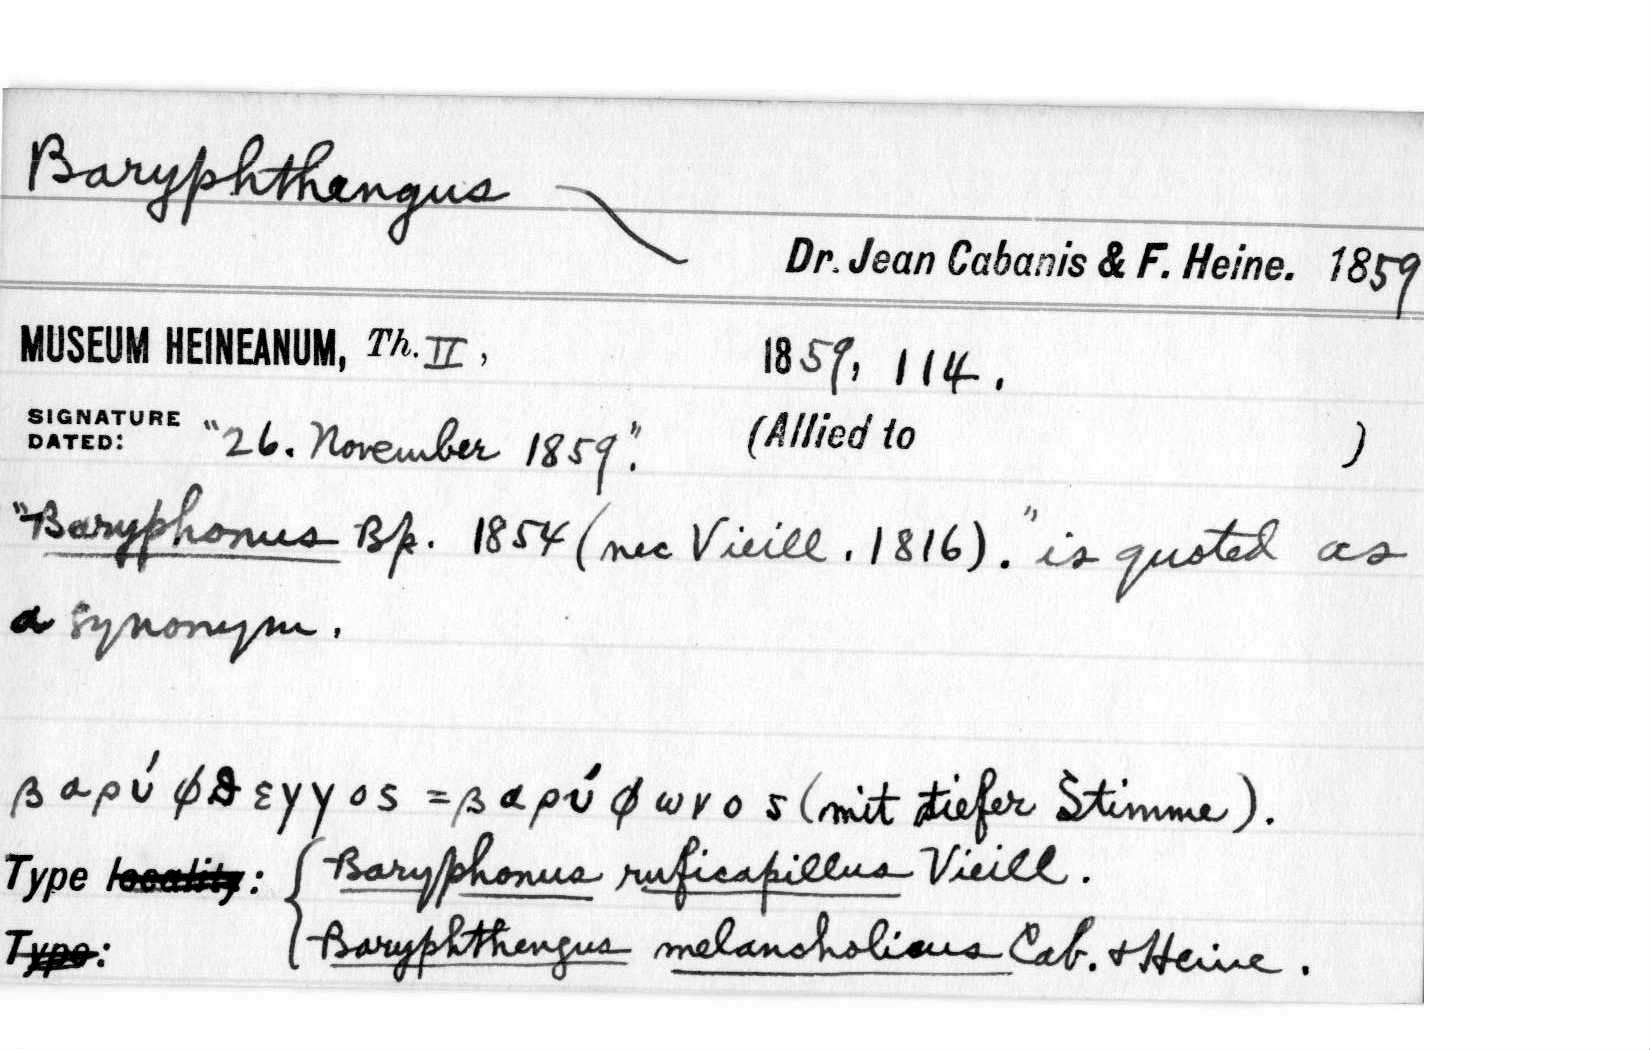 Baryphthengus
Dr. Jean Cabanis & F. Heine. 1859
MUSEUM HEINEANUM, Th. II, 1859, 114.
SIGNATURE DATED: "26. November 1859". (Allied to )
"Baryphonus Bp. 1854 (nec Vieill. 1816)." is quoted as
a synonym.
βαρύφθεγγος = βαρύφωνος (mit tiefer Stimme).
Type locality: Baryphonus ruficapillus Vieill.
Type: Baryphthengus melancholicus Cab. & Heine.